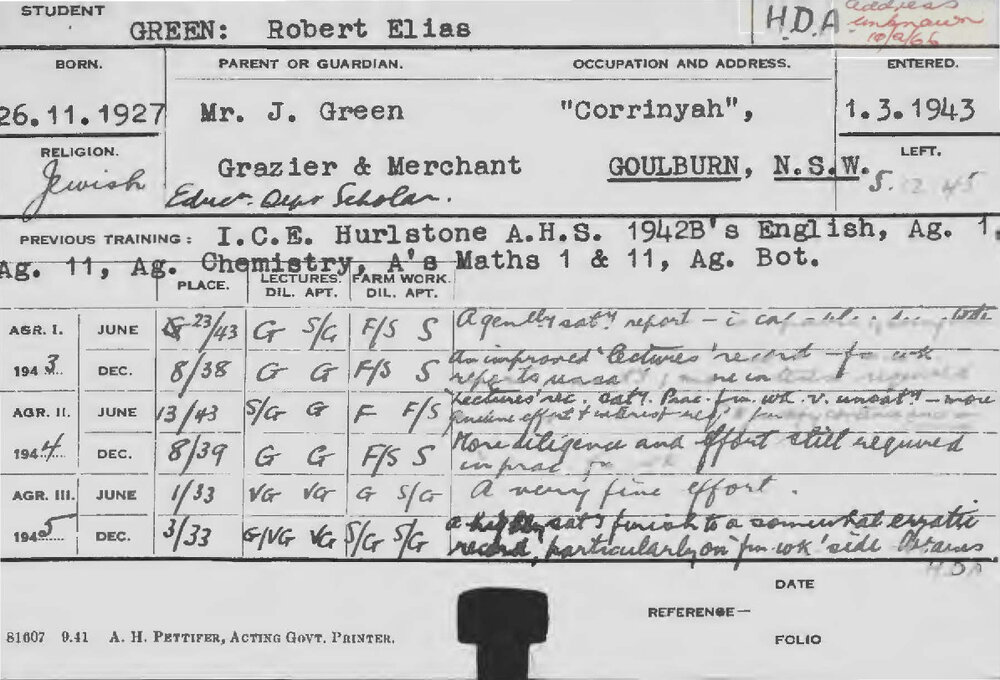 STUDENT
GREEN: Robert Elias
H.D.A
address
unknown
10/2/66
BORN. PARENT OR GUARDIAN. OCCUPATION AND ADDRESS. ENTERED.
26.11.1927 Mr. J. Green "Corrinyah", 1.3.1943
RELIGION. Grazier & Merchant GOULBURN, N.S.W. LEFT.
Jewish Scholar. 5.12.45
PREVIOUS TRAINING: I.C.E. Hurlstone A.H.S. 1942B's English, Ag. 1,
Ag. 11, Ag. Chemistry, A's Maths 1 & 11, Ag. Bot.
PLACE. LECTURES. FARM WORK.
DIL. APT. DIL. APT.
AGR. I. JUNE 23/43 G S/G F/S S A gen'lly sat'y report —
1943 DEC. 8/38 G G F/S S An improved 'lectures' record — fm wk
reports
AGR. II. JUNE 13/43 S/G G F F/S 'Lectures' rec. sat'y. Prac. fm. wk. v. unsat'y — more
genuine effort & interest
1944 DEC. 8/39 G G F/S S More diligence and effort still required
in prac
AGR. III. JUNE 1/33 VG VG G S/G A very fine effort.
1945 DEC. 3/33 G/VG VG S/G S/G a highly sat'y finish to a somewhat erratic
record, particularly on 'fm wk' side Obtains
H.D.A
DATE
REFERENCE—
81607 9.41 A. H. PETTIFER, ACTING GOVT. PRINTER.
FOLIO